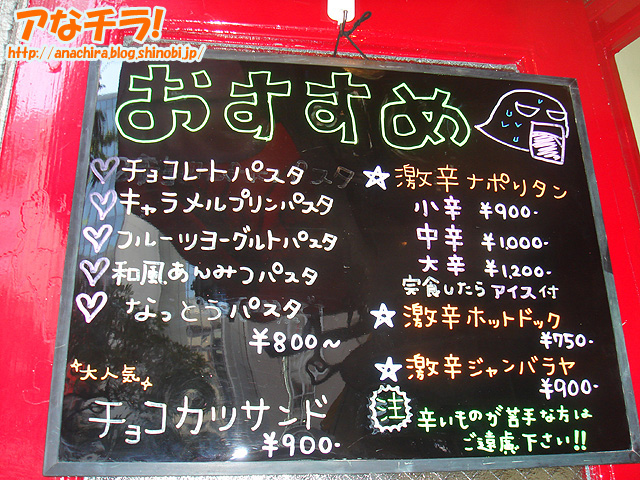 アなチラ!
http://anachira.blog.shinobi.jp/
おすすめ
♡チョコレートパスタ
♡キャラメルプリンパスタ
♡フルーツヨーグルトパスタ
♡和風あんみつパスタ
♡なっとうパスタ
¥800~
大人気
チョコカツサンド
¥900-
☆激辛ナポリタン
小辛 ¥900-
中辛 ¥1,000-
大辛 ¥1,200-
完食したらアイス付
☆激辛ホットドック
¥750-
☆激辛ジャンバラヤ
¥900-
注 辛いものが苦手な方は
ご遠慮下さい!!